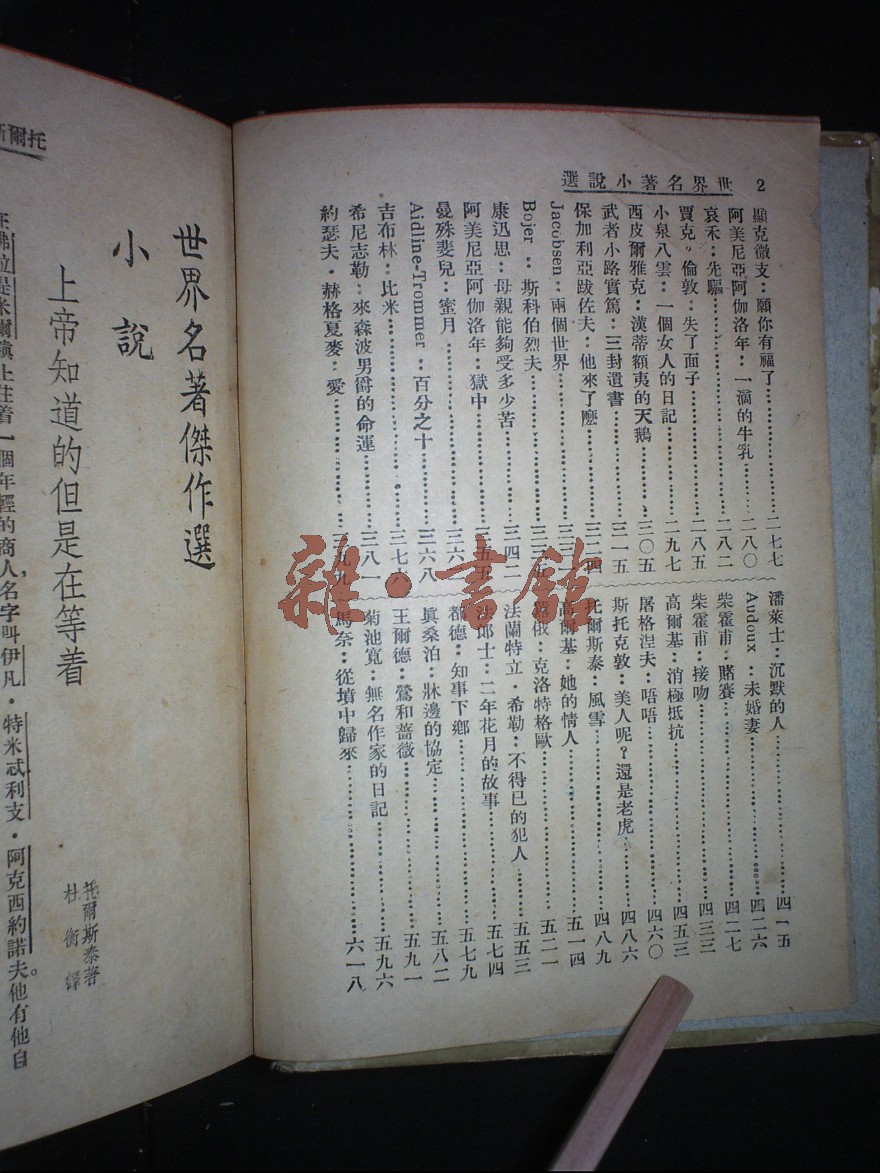 2 世界名著小說選
顯克微支：願你有福了……二七七
阿美尼亞阿伽洛年：一滴的牛乳……二八〇
哀禾：先驅……二八二
賈克·倫敦：失了面子……二八五
小泉八雲：一個女人的日記……二九七
西皮爾雅克：漢蒂額夷的天鵝……三〇五
武者小路實篤：三封遺書……三一五
保加利亞跋佐夫：他來了麽……三二四
Jacobsen：兩個世界……三三
Bojer：斯科伯烈夫……三三五
康迅思：母親能夠受多少苦……三四二
阿美尼亞阿伽洛年：獄中……五五
曼殊斐兒：蜜月……三六一
Aidline-Trommer：百分之十……三六八
吉布林：比米……三七六
希尼志勒：來森波男爵的命運……三八一
約瑟夫·赫格夏麥：愛……九九
潘萊士：沉默的人……四一五
Audoux：未婚妻……四二六
柴霍甫：賭賽……四二七
柴霍甫：接吻……四三三
高爾基：消極抵抗……四五三
屠格涅夫：唔唔……四六〇
斯托克敦：美人呢？還是老虎……四八六
托爾斯泰：風雪……四八九
高爾基：她的情人……五一四
囂俄：克洛特格歐……五二一
法蘭特立·希勒：不得已的犯人……五五三
法郎士：二年花月的故事……五七四
都德：知事下鄉……五七九
眞桑泊：牀邊的協定……五八二
王爾德：鶯和薔薇……五九一
菊池寬：無名作家的日記……五九六
馬奈：從墳中歸來……六一八
雜·書館
托爾斯
世界名著傑作選
小說
上帝知道的但是在等着
托爾斯泰著
杜衡譯
在弗拉提米爾鎮上住着一個年輕的商人，名字叫伊凡·特米忒利支·阿克西約諾夫。他有他自